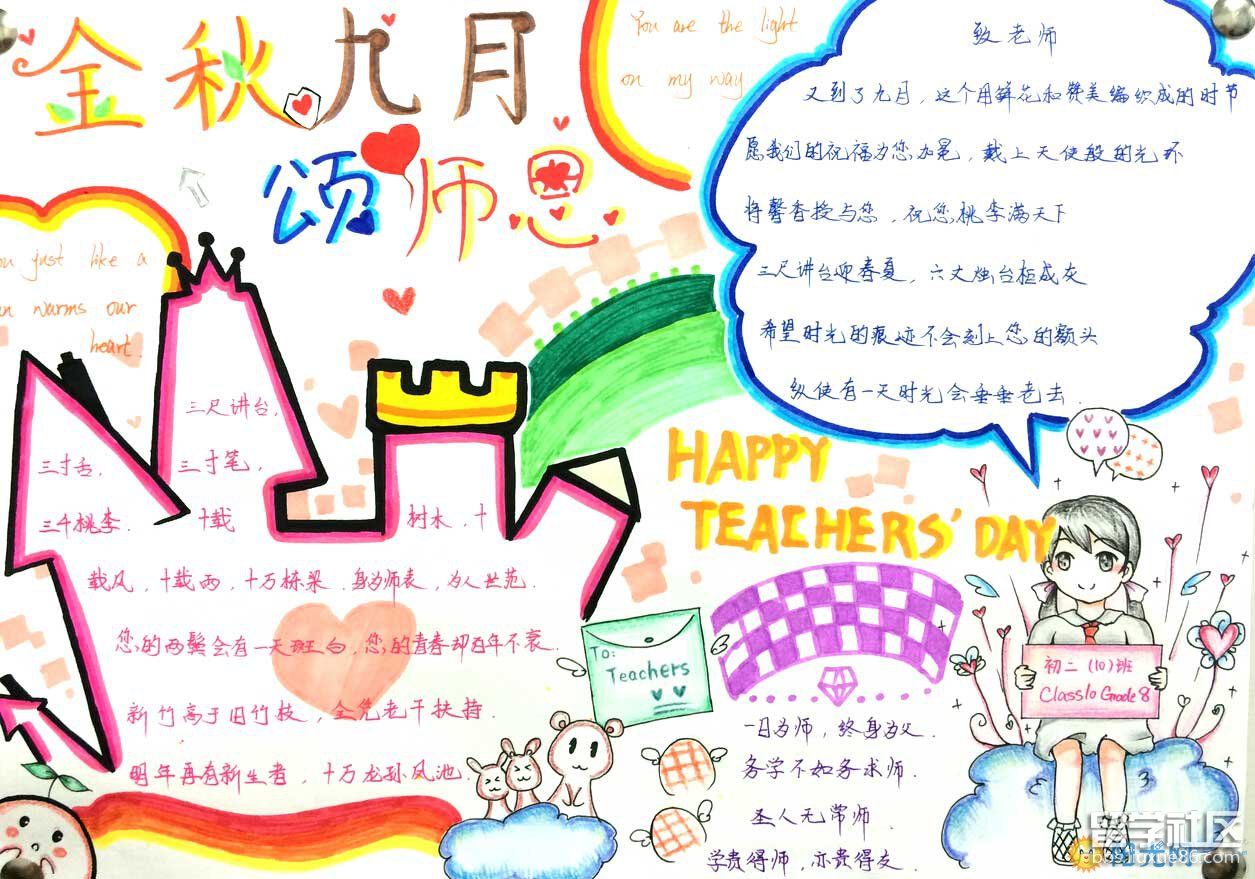 金秋九月
颂师恩
You are the light
on my way
致老师
又到了九月，这个用鲜花和赞美编织成的时节
愿我们的祝福为您加冕，戴上天使般的光环
将馨香授与您，祝您桃李满天下
三尺讲台迎春夏，六丈烛台柜成灰
希望时光的痕迹不会刻上您的额头
纵使有一天时光会垂垂老去.
ou just like a
n warms our
heart.
三尺讲台，
三寸舌，三寸笔，
三千桃李. 十载 树木，十
载风，十载雨，十万栋梁.身为师表，为人世范.
您的两鬓会有一天斑白，您的青春却百年不衰.
新竹高于旧竹枝，全凭老干扶持.
明年再有新生者，十万龙孙凤池.
HAPPY
TEACHERS' DAY
To:
Teachers
初二(10)班
Class10 Grade8
一日为师，终身为父.
务学不如务求师.
圣人无常师.
学贵得师，亦贵得友.
留学社区
bbs.liuxue86.com